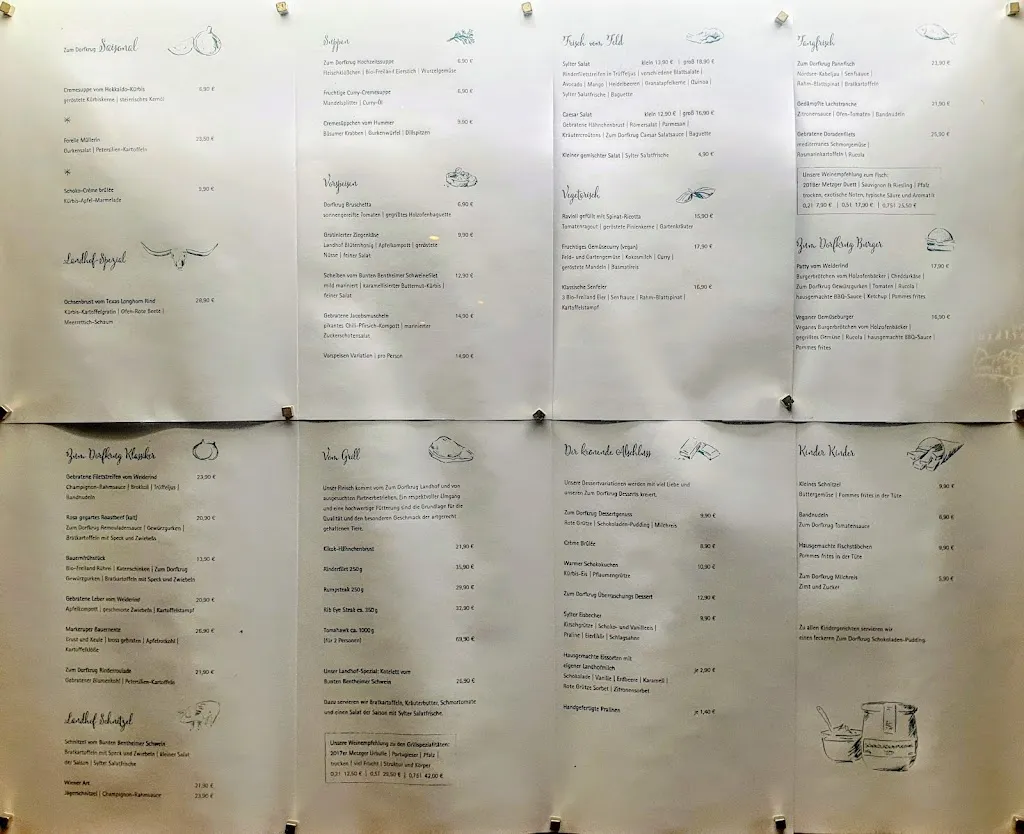 Zum Dorfkrug Saisonal
Cremesuppe vom Hokkaido-Kürbis 6,90 €
geröstete Kürbiskerne | steirisches Kernöl
*
Forelle Müllerin 23,50 €
Gurkensalat | Petersilien-Kartoffeln
*
Schoko-Crème brûlée 9,90 €
Kürbis-Apfel-Marmelade
Landhof-Spezial
Ochsenbrust vom Texas Longhorn Rind 28,90 €
Kürbis-Kartoffelgratin | Ofen-Rote Beete |
Meerrettich-Schaum
Suppen
Zum Dorfkrug Hochzeitssuppe 6,90 €
Fleischklößchen | Bio-Freiland Eierstich | Wurzelgemüse
Fruchtige Curry-Cremesuppe 6,90 €
Mandelsplitter | Curry-Öl
Cremesüppchen vom Hummer 9,90 €
Büsumer Krabben | Gurkenwürfel | Dillspitzen
Vorspeisen
Dorfkrug Bruschetta 6,90 €
sonnengereifte Tomaten | gegrilltes Holzofenbaguette
Gratinierter Ziegenkäse 9,90 €
Landhof Blütenhonig | Apfelkompott | geröstete
Nüsse | feiner Salat
Scheiben vom Bunten Bentheimer Schweinefilet 12,90 €
mild mariniert | karamellisierter Butternut-Kürbis |
feiner Salat
Gebratene Jacobsmuscheln 14,90 €
pikantes Chili-Pfirsich-Kompott | marinierter
Zuckerschotensalat
Vorspeisen Variation | pro Person 14,90 €
Frisch vom Feld
Sylter Salat klein 13,90 € | groß 18,90 €
Rinderfiletstreifen in Trüffeljus | verschiedene Blattsalate |
Avocado | Mango | Heidelbeeren | Granatapfelkerne | Quinoa |
Sylter Salatfrische | Baguette
Caesar Salat klein 12,90 € | groß 16,90 €
Gebratene Hähnchenbrust | Römersalat | Parmesan |
Kräutercroûtons | Zum Dorfkrug Caesar Salatsauce | Baguette
Kleiner gemischter Salat | Sylter Salatfrische 4,90 €
Vegetarisch
Ravioli gefüllt mit Spinat-Ricotta 15,90 €
Tomatenragout | geröstete Pinienkerne | Gartenkräuter
Fruchtiges Gemüsecurry (vegan) 17,90 €
Feld- und Gartengemüse | Kokosmilch | Curry |
geröstete Mandeln | Basmatireis
Klassische Senfeier 16,90 €
3 Bio-Freiland Eier | Senfsauce | Rahm-Blattspinat |
Kartoffelstampf
Fangfrisch
Zum Dorfkrug Pannfisch 23,90 €
Nordsee-Kabeljau | Senfsauce |
Rahm-Blattspinat | Bratkartoffeln
Gedämpfte Lachstranche 21,90 €
Zitronensauce | Ofen-Tomaten | Bandnudeln
Gebratene Doradenfilets 25,90 €
mediterranes Schmorgemüse |
Rosmarinkartoffeln | Rucola
Unsere Weinempfehlung zum Fisch:
2018er Metzger Duett | Sauvignon & Riesling | Pfalz
trocken, exotische Noten, typische Säure und Aromatik
0,2l 7,90 € | 0,5l 17,90 € | 0,75l 25,50 €
Zum Dorfkrug Burger
Patty vom Weiderind 17,90 €
Burgerbrötchen vom Holzofenbäcker | Cheddarkäse |
Zum Dorfkrug Gewürzgurken | Tomaten | Rucola |
hausgemachte BBQ-Sauce | Ketchup | Pommes frites
Veganer Gemüseburger 16,90 €
Veganes Burgerbrötchen vom Holzofenbäcker |
gegrilltes Gemüse | Rucola | hausgemachte BBQ-Sauce |
Pommes frites
Zum Dorfkrug Klassiker
Gebratene Filetstreifen vom Weiderind 23,90 €
Champignon-Rahmsauce | Brokkoli | Trüffeljus |
Bandnudeln
Rosa gegartes Roastbeef (kalt) 20,90 €
Zum Dorfkrug Remouladensauce | Gewürzgurken |
Bratkartoffeln mit Speck und Zwiebeln
Bauernfrühstück 13,90 €
Bio-Freiland Rührei | Katenschinken | Zum Dorfkrug
Gewürzgurken | Bratkartoffeln mit Speck und Zwiebeln
Gebratene Leber vom Weiderind 20,90 €
Apfelkompott | geschmorte Zwiebeln | Kartoffelstampf
Markeruper Bauernente 26,90 €
Brust und Keule | kross gebraten | Apfelrotkohl |
Kartoffelklöße
Zum Dorfkrug Rinderroulade 21,90 €
Gebratener Blumenkohl | Petersilien-Kartoffeln
Landhof Schnitzel
Schnitzel vom Bunten Bentheimer Schwein
Bratkartoffeln mit Speck und Zwiebeln | kleiner Salat
der Saison | Sylter Salatfrische
Wiener Art 21,90 €
Jägerschnitzel | Champignon-Rahmsauce 23,90 €
Vom Grill
Unser Fleisch kommt vom Zum Dorfkrug Landhof und von
ausgesuchten Partnerbetrieben. Ein respektvoller Umgang
und eine hochwertige Fütterung sind die Grundlage für die
Qualität und den besonderen Geschmack der artgerecht
gehaltenen Tiere.
Kikok-Hähnchenbrust 21,90 €
Rinderfilet 250 g 35,90 €
Rumpsteak 250 g 29,90 €
Rib Eye Steak ca. 350 g 32,90 €
Tomahawk ca. 1000 g
(für 2 Personen) 69,90 €
Unser Landhof-Spezial: Kotelett vom
Bunten Bentheimer Schwein 26,90 €
Dazu servieren wir Bratkartoffeln, Kräuterbutter, Schmortomate
und einen Salat der Saison mit Sylter Salatfrische.
Unsere Weinempfehlung zu den Grillspezialitäten:
2017er Metzger Urbulle | Portugieser | Pfalz |
trocken | viel Frucht | Struktur und Körper
0,2l 12,50 € | 0,5l 28,50 € | 0,75l 42,00 €
Der krönende Abschluss
Unsere Dessertvariationen werden mit viel Liebe und
unseren Zum Dorfkrug Desserts kreiert.
Zum Dorfkrug Dessertgenuss 9,90 €
Rote Grütze | Schokoladen-Pudding | Milchreis
Crème Brûlée 8,90 €
Warmer Schokokuchen 10,90 €
Kürbis-Eis | Pflaumengrütze
Zum Dorfkrug Überraschungs Dessert 12,90 €
Sylter Eisbecher 9,90 €
Kirschgrütze | Schoko- und Vanilleeis |
Praline | Eierlikör | Schlagsahne
Hausgemachte Eissorten mit
eigener Landhofmilch je 2,90 €
Schokolade | Vanille | Erdbeere | Karamell |
Rote Grütze Sorbet | Zitronensorbet
Handgefertigte Pralinen je 1,40 €
Kinder Kinder
Kleines Schnitzel 9,90 €
Buttergemüse | Pommes frites in der Tüte
Bandnudeln 6,90 €
Zum Dorfkrug Tomatensauce
Hausgemachte Fischstäbchen 9,90 €
Pommes frites in der Tüte
Zum Dorfkrug Milchreis 5,90 €
Zimt und Zucker
Zu allen Kindergerichten servieren wir
einen leckeren Zum Dorfkrug Schokoladen-Pudding.